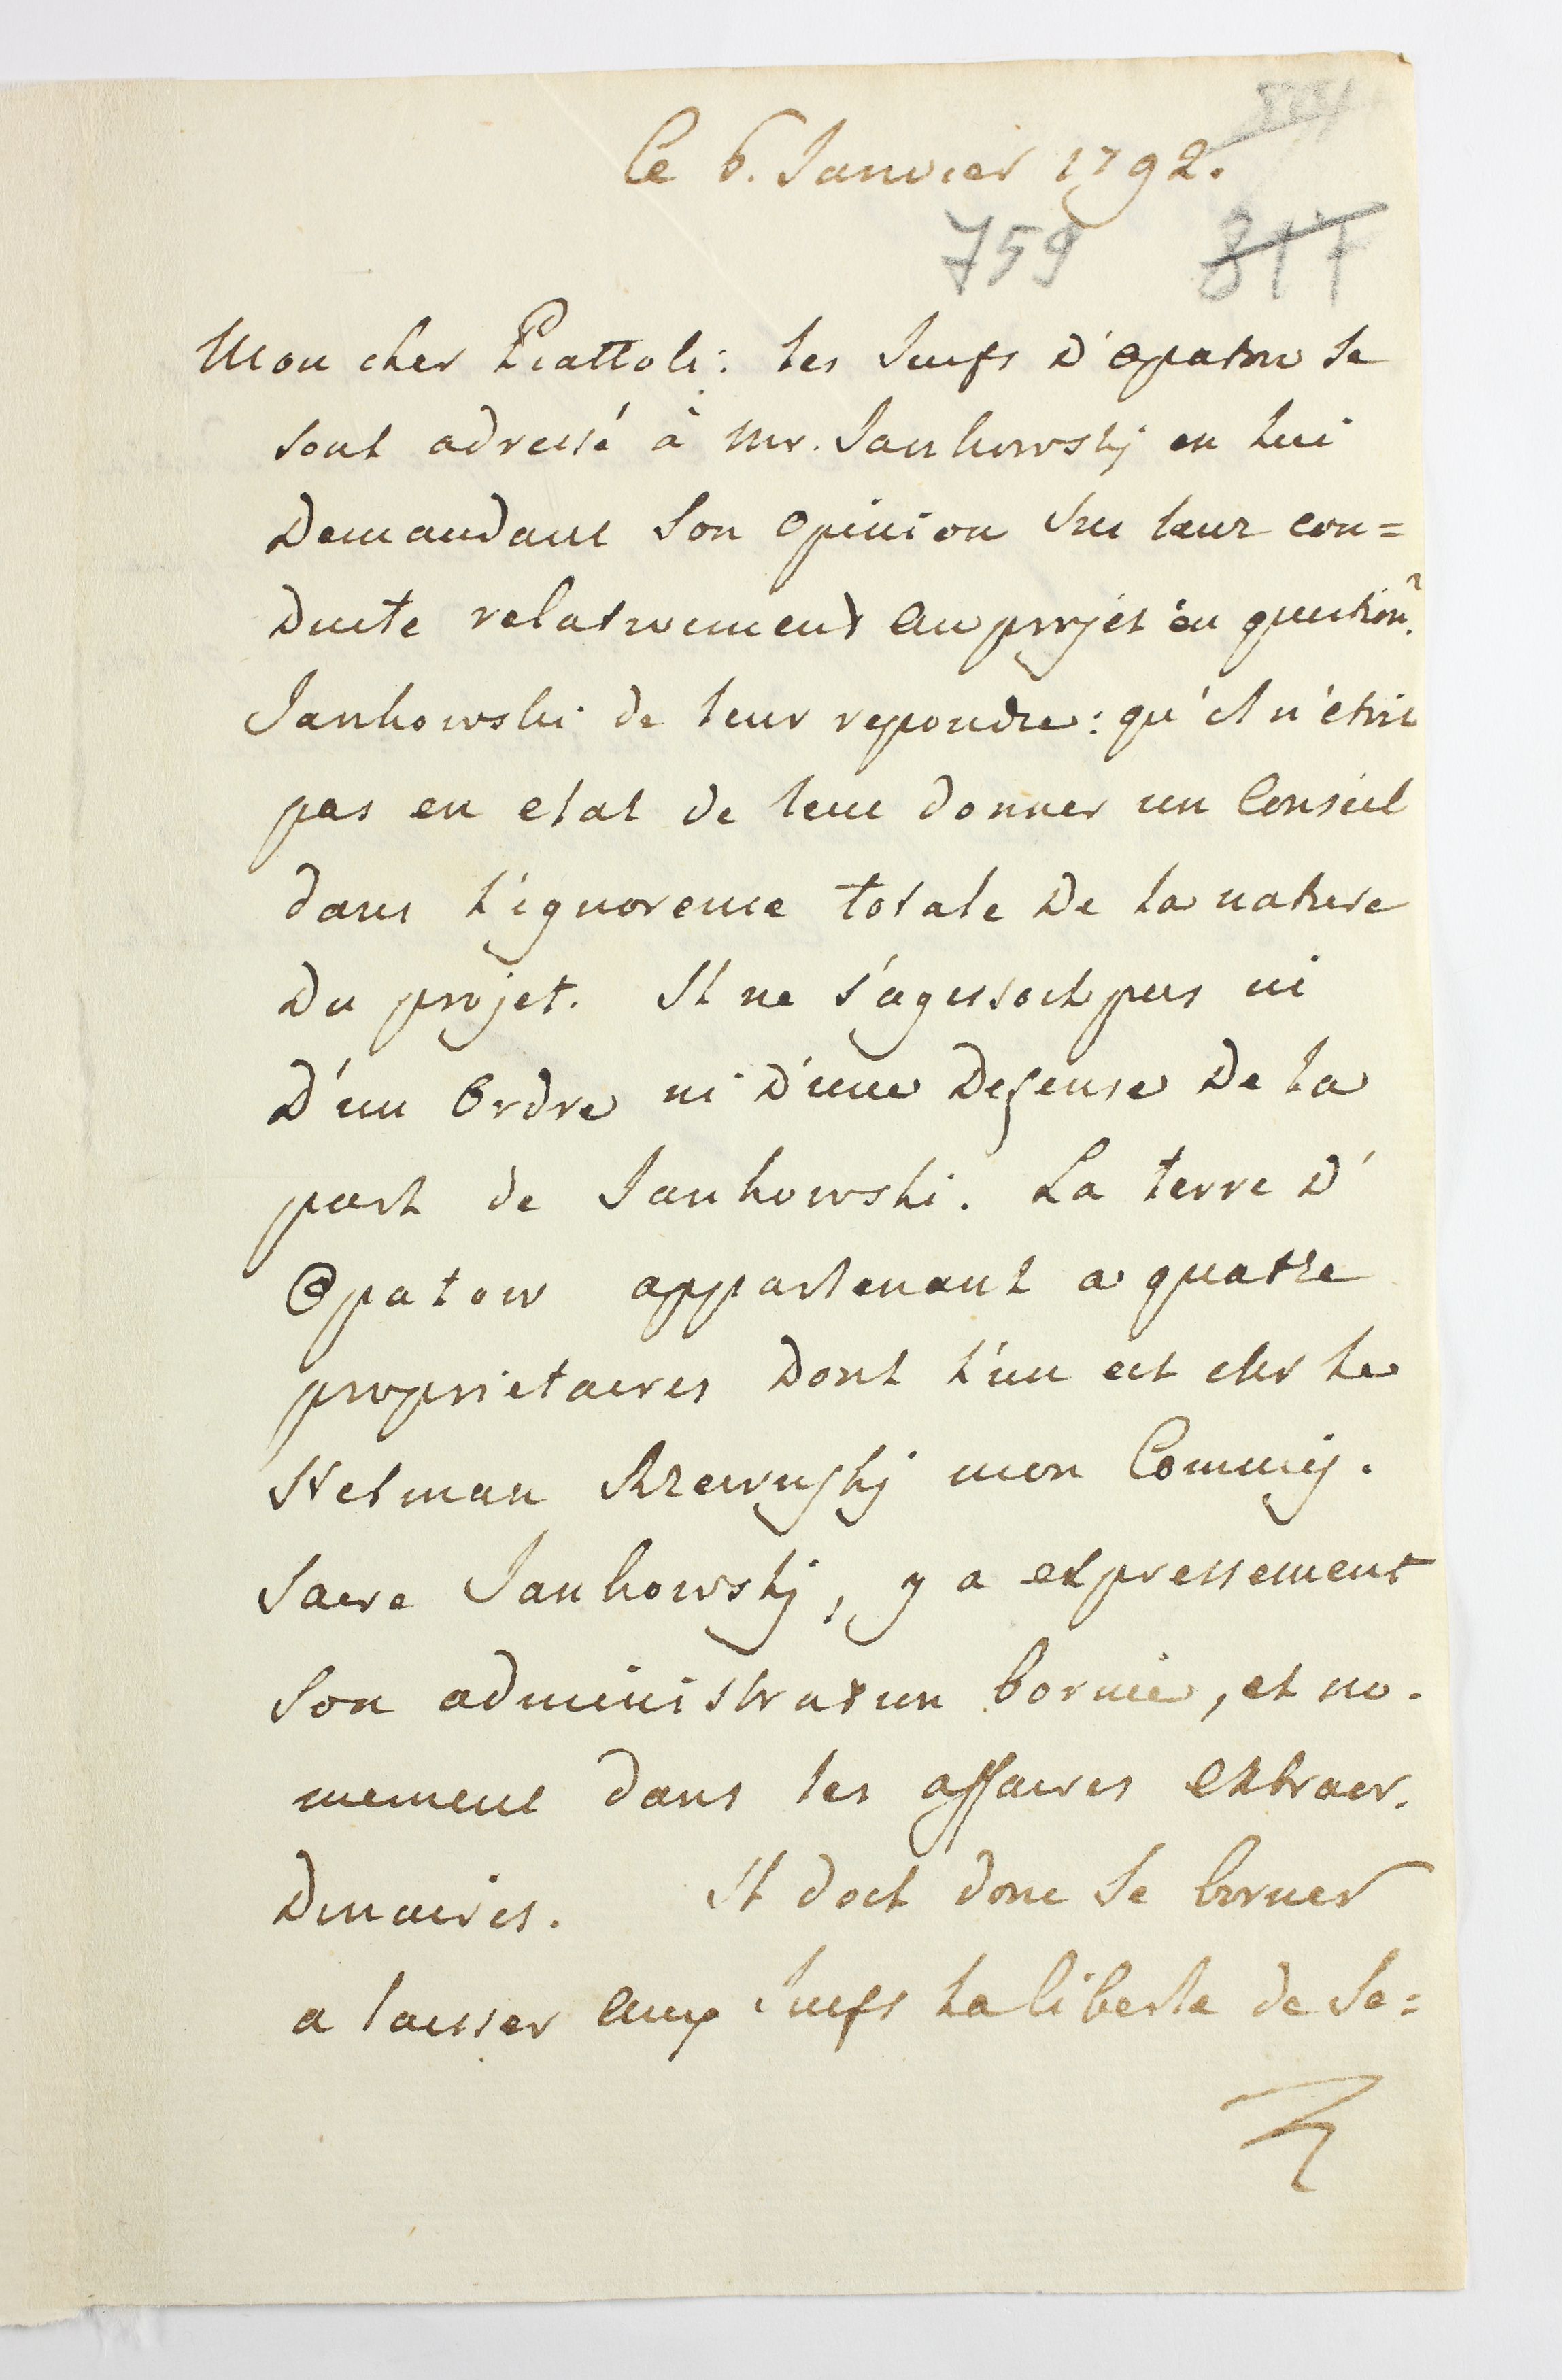 le 6. Janvier 1792.
759 317
Mon cher Piattoli: les Juifs d'Opatow se
sont adressé à Mr. Jankowskj en lui
demandant son opinion sur leur con=
duite relativement au projet en question?
Jankowski de leur repondre: qu'il n'étoit
pas en etat de leur donner un Conseil
dans l'ignorence totale de la nature
du projet. Il ne s'agissoit pas ici
d'un Ordre ni d'une Defense de la
part de Jankowski. La terre d'
Opatow appartenant a quatre
proprietaires dont l'un est cher le
Hetman Rzewuskj mon Commis.
saire Jankowskj, y a expressement
son administration bornée, et no.
mement dans les affaires extraor.
dinaires. Il doit donc se borner
a laisser aux Juifs la liberte de se=